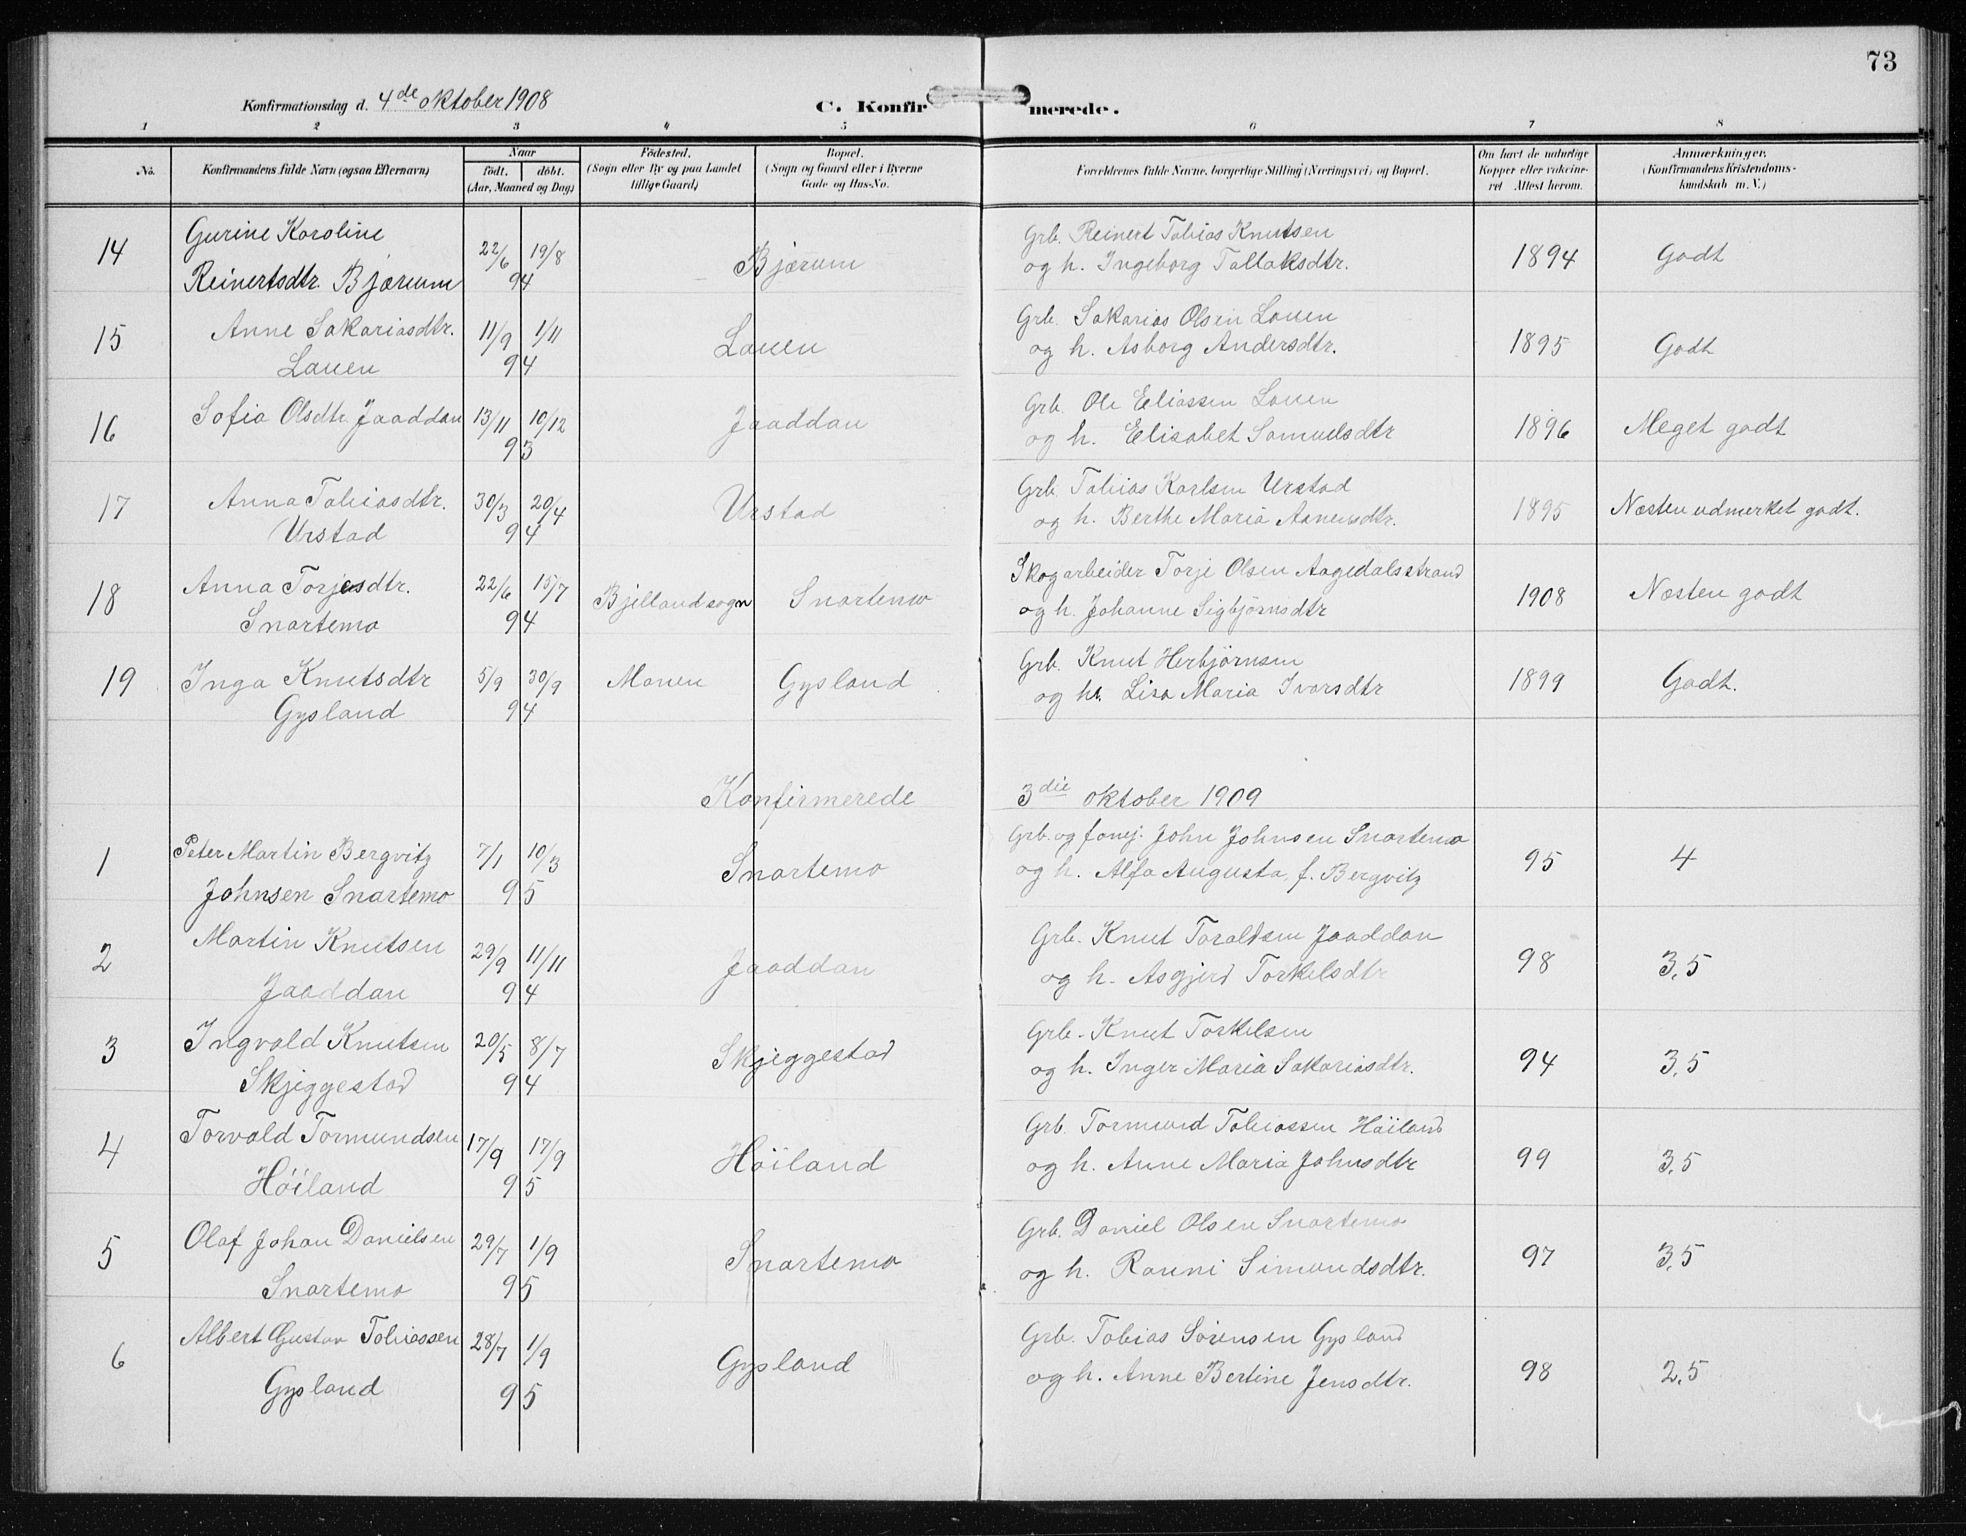 73
Konfirmationsdag d. 4de oktober 1908
C. Konfirmerede.
1 2 3 4 5 6 7 8
No.
Konfirmandens fulde Navn (ogsaa Efternavn)
Naar
født. døbt.
(Aar, Maaned og Dag)
Fødested.
(Sogn eller By og paa Landet
tillige Gaard)
Bopæl.
(Sogn og Gaard eller i Byerne
Gade og Hus-No.
Forældrenes fulde Navne, borgerlige Stilling (Næringsvei) og Bopæl.
Om havt de naturlige
Kopper eller vakcine-
ret Attest herom.
Anmærkninger.
(Konfirmandens Kristendoms-
kundskab m. V.)
14 Gurine Karoline 22/6 19/8 Bjærum Grb. Reinert Tobias Knutsen 1894 Godt
Reinertsdtr. Bjærum 94 og h. Ingeborg Tallaksdtr.
15 Anne Sakariasdtr. 11/9 1/11 Lauen Grb. Sakarias Olsen Lauen 1895 Godt
Lauen 94 og h. Asborg Andersdtr.
16 Sofia Olsdtr. Jaaddan 13/11 10/12 Jaaddan Grb. Ole Eliassen Lauen 1896 Meget godt
93 og h. Elisabet Samuelsdtr
17 Anna Tobiasdtr. 30/3 20/4 Urstad Grb. Tobias Karlsen Urstad 1895 Næsten udmerket godt.
Urstad 94 og h. Berthe Maria Aanensdtr.
18 Anna Torjesdtr. 22/6 15/7 Bjelland sogn Snartemo Skogarbeider Torje Olsen Aagedalsstrand 1908 Næsten godt
Snartemo 94 og h. Johanne Sigbjørnsdtr
19 Inga Knutsdtr 5/9 30/9 Monen Gysland Grb. Knut Herbjørnsen 1899 Godt.
Gysland 94 og h. Lisa Maria Ivarsdtr
Konfirmerede 3die oktober 1909
1 Peter Martin Bergvitz 7/1 10/3 Snartemo Grb. og forrej. John Johnsen Snartemo 95 4
Johnsen Snartemo 95 og h. Alfa Augusta, f. Bergvitz
2 Martin Knutsen 29/9 11/11 Jaaddan Grb. Knut Toraldsen Jaaddan 98 3,5
Jaaddan 94 og h. Asgjerd Torkelsdtr
3 Ingvald Knutsen 20/5 8/7 Skjeggestad Grb. Knut Torkelsen 94 3,5
Skjeggestad 94 og h. Inger Maria Sakariasdtr.
4 Torvald Tormundsen 17/9 17/9 Høiland Grb. Tormund Tobiassen Høiland 99 3,5
Høiland 95 og h. Anne Maria Johnsdtr
5 Olaf Johan Danielsen 29/7 1/9 Snartemo Grb. Daniel Olsen Snartemo 97 3,5
Snartemo 95 og h. Ranni Simundsdtr.
6 Albert Gustav Tobiassen 28/7 1/9 Gysland Grb. Tobias Sørensen Gysland 98 2,5
Gysland 95 og h. Anne Bertine Jensdtr.